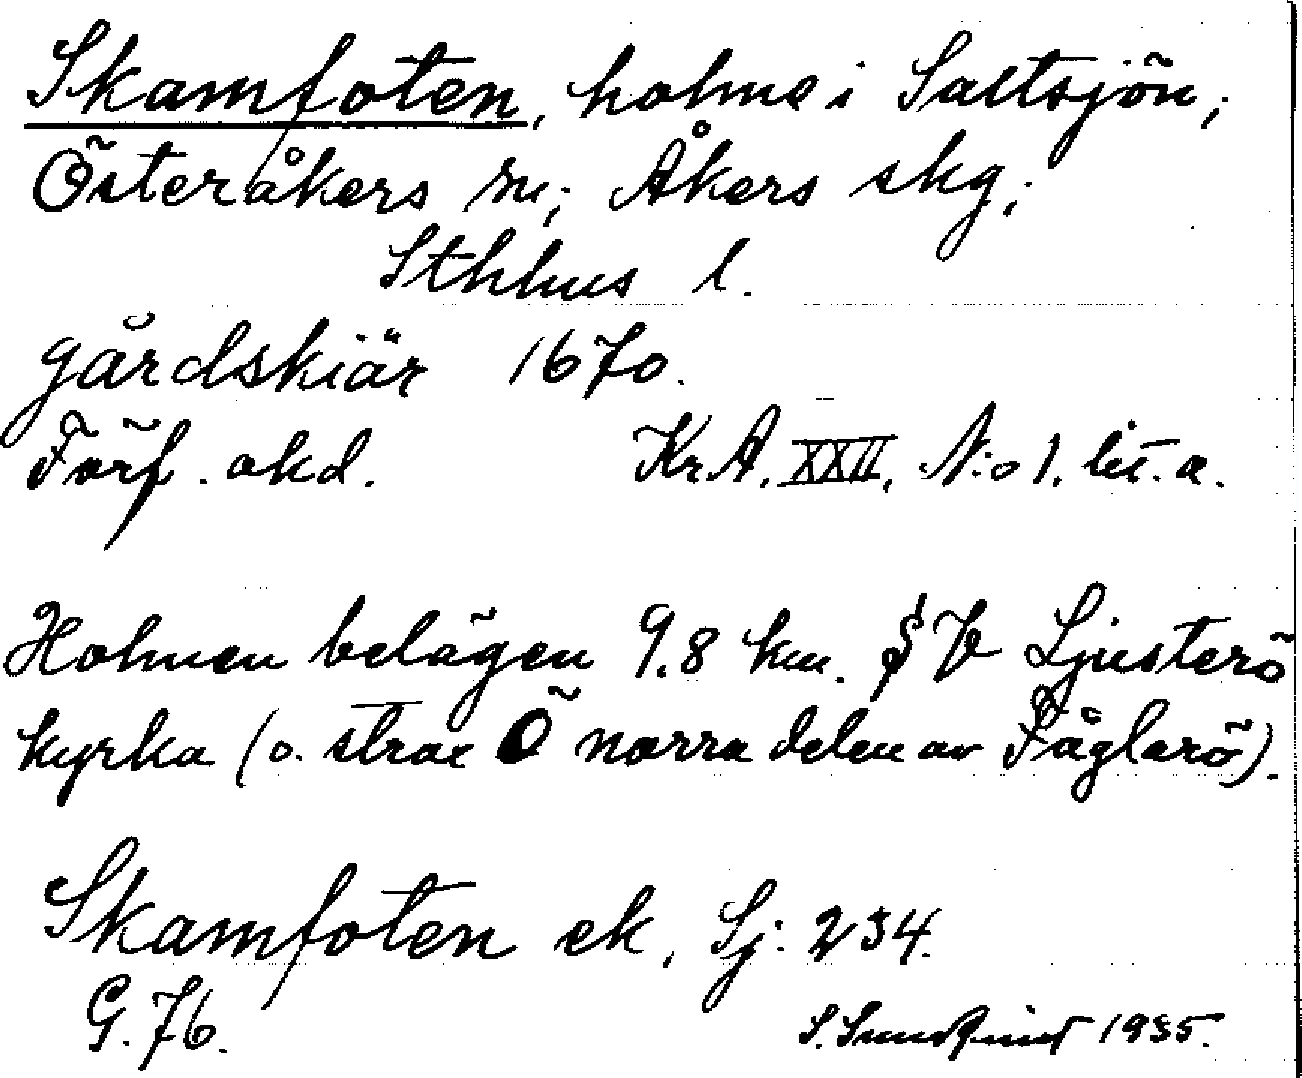 Skamfoten, holme i Saltsjön,
Österåkers sn; Åkers skg;
Sthlms l.
gårdskiär 1670.
Förf. okd. KrA. XXII, N:o 1. lit. a.
Holmen belägen 9.8 km. SV Ljusterö
kyrka (o. strax Ö norra delen av Fåglarö).
Skamfoten ek, Sj: 234.
G. 76.
S. Sundqvist 1935.